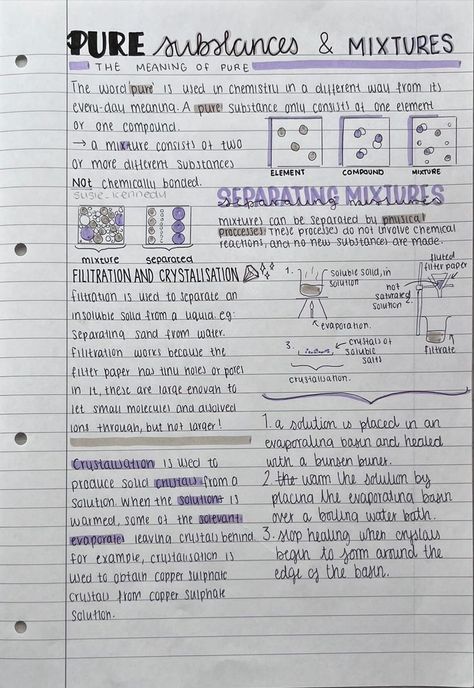 PURE substances & MIXTURES
THE MEANING OF PURE
The word 'pure' is used in chemistry in a different way from its
every-day meaning. A pure substance only consists of one element
or one compound.
→ a mixture consists of two
or more different substances
NOT chemically bonded.
ELEMENT
COMPOUND
MIXTURE
susie-kennedy
mixture
separated
SEPARATING MIXTURES
separating mixtures
mixtures can be separated by physical
proccesses. These processes do not involve chemical
reactions, and no new substances are made.
FILITRATION AND CRYSTALISATION
filtration is used to separate an
insoluble solid from a liquid. eg:
separating sand from water.
Filitration works because the
filter paper has tiny holes or pores
in it, these are large enough to
let small molecules and disolved
ions through, but not larger!
1.
soluble solid, in
solution
evaporation.
3.
crystals of
soluble
salts
crystalisation.
fluted
filter paper
not
saturated
solution
2.
filtrate
Crystalisation is used to
produce solid crystals from a
solution. When the solution is
warmed, some of the solevent
evaporates leaving crystals behind.
for example, crystalisation is
used to obtain copper sulphate
crystals from copper sulphate
solution.
1. a solution is placed in an
evaporating basin and heated
with a bunsen buner.
2. the warm the solution by
placing the evaporating basin
over a boiling water bath.
3. stop heating when crystals
begin to form around the
edge of the basin.